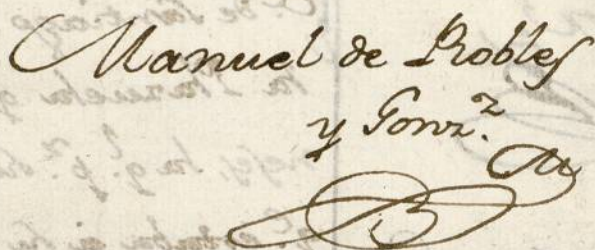 Manuel de Robles
y Gonz.z